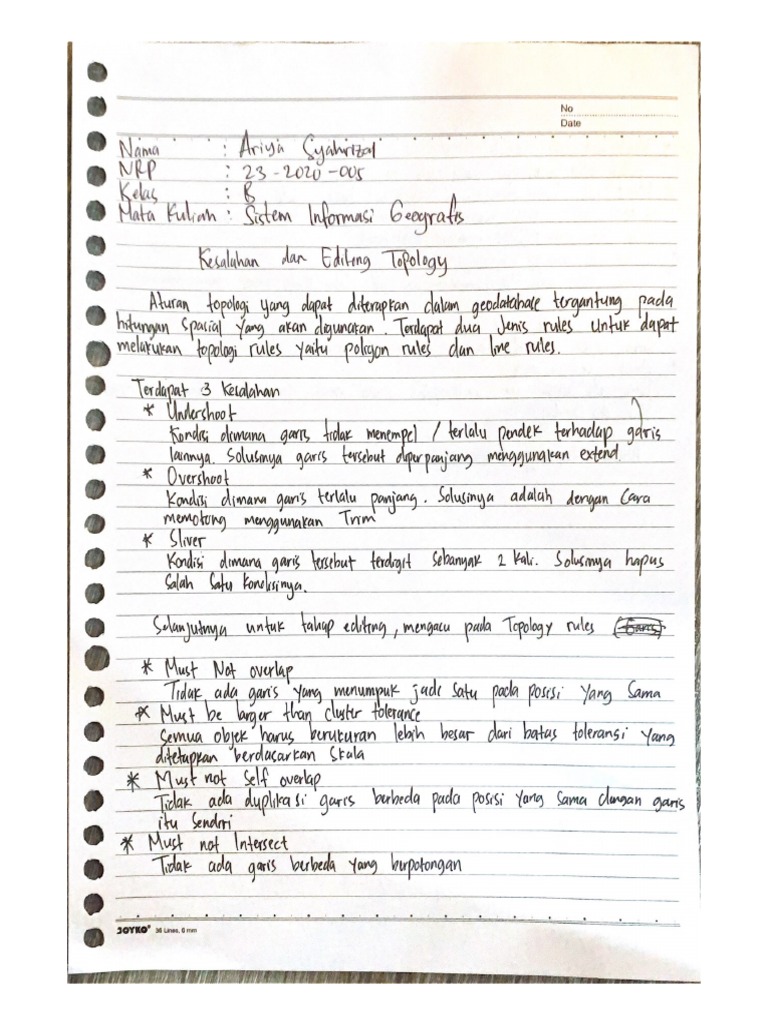 No
Date
Nama : Ariya Syahrizal
NRP : 23-2020-005
Kelas : B
Mata Kuliah : Sistem Informasi Geografis
Kesalahan dan Editing Topology
Aturan topologi yang dapat diterapkan dalam geodatabase tergantung pada
hitungan spasial yang akan digunakan. Terdapat dua jenis rules untuk dapat
melakukan topologi rules yaitu poligon rules dan line rules.
Terdapat 3 Kesalahan
* Undershoot
Kondisi dimana garis tidak menempel / terlalu pendek terhadap garis
lainnya. Solusinya garis tersebut diperpanjang menggunakan extend.
* Overshoot
Kondisi dimana garis terlalu panjang. Solusinya adalah dengan cara
memotong menggunakan Trim
* Sliver
Kondisi dimana garis tersebut terdigit sebanyak 2 kali. Solusinya hapus
salah satu koneksinya.
Selanjutnya untuk tahap editing, mengacu pada Topology rules
* Must Not overlap
Tidak ada garis yang menumpuk jadi satu pada posisi yang sama
* Must be larger than cluster tolerance
Semua objek harus berukuran lebih besar dari batas toleransi yang
ditetapkan berdasarkan skala
* Must not Self overlap
Tidak ada duplikasi garis berbeda pada posisi yang sama dengan garis
itu sendiri
* Must not Intersect
Tidak ada garis berbeda yang berpotongan
JOYKO 36 Lines, 6 mm